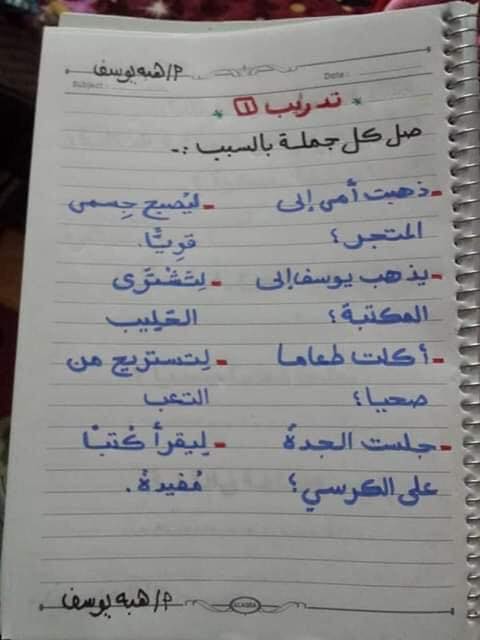 م/ هبه يوسف
Subject: Date:
* تدريب ١ *
صل كل جملة بالسبب :-
- ذهبت أمي إلى - ليُصبح جِسمى
المتجر ؛ قويًّا.
- يذهب يوسف إلى - لِتَشْتَرى
المكتبة ؛ الحَلِيب
- أكلت طعاما - لِتستريح من
صحيا ؛ التعب
- جلست الجدةُ - لِيقرأ كُتبًا
على الكرسي ؛ مُفيدةً.
م/ هبه يوسف